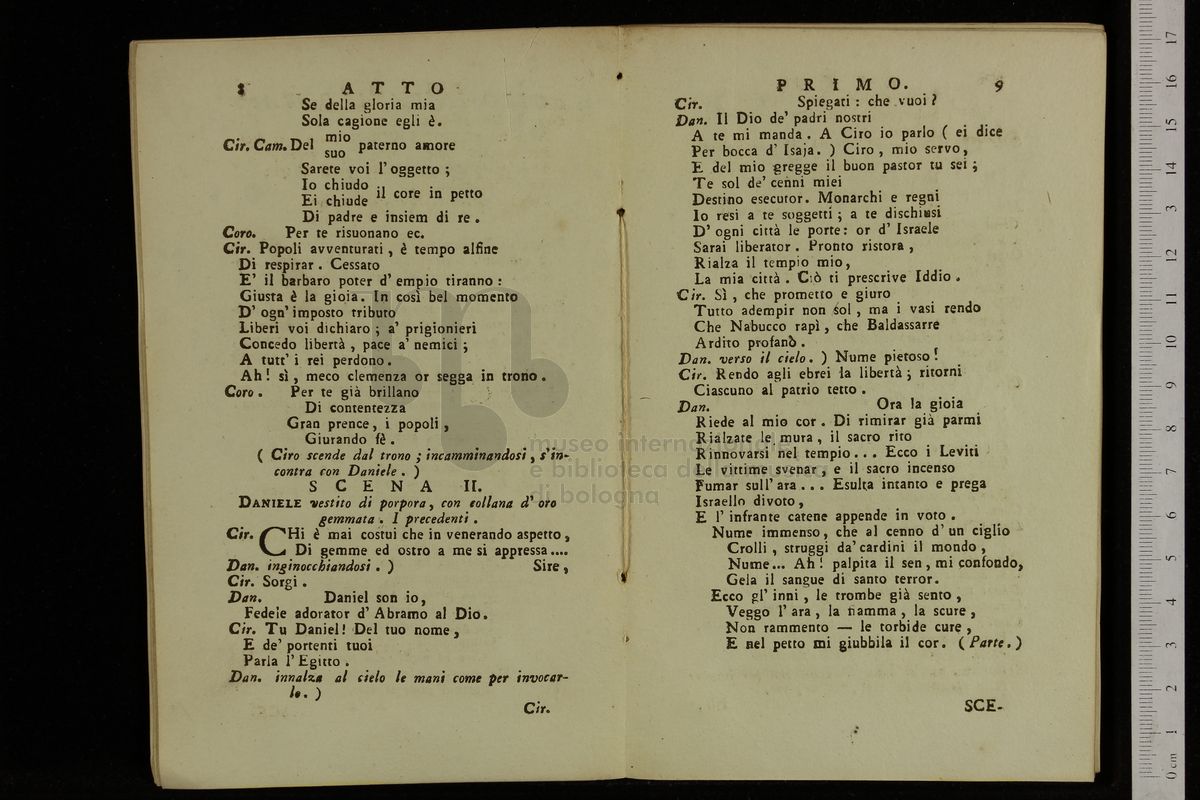 8 ATTO
Se della gloria mia
Sola cagione egli è.
Cir. Cam. Del mio paterno amore
suo
Sarete voi l'oggetto ;
Io chiudo il core in petto
Ei chiude
Di padre e insiem di re .
Coro. Per te risuonano ec.
Cir. Popoli avventurati , è tempo alfine
Di respirar . Cessato
E' il barbaro poter d' empio tiranno :
Giusta è la gioia. In così bel momento
D' ogn' imposto tributo
Liberi voi dichiaro ; a' prigionieri
Concedo libertà , pace a' nemici ;
A tutt' i rei perdono .
Ah! sì , meco clemenza or segga in trono .
Coro . Per te già brillano
Di contentezza
Gran prence , i popoli ,
Giurando fè .
( Ciro scende dal trono ; incamminandosi , s'in-
contra con Daniele . )
SCENA II.
DANIELE vestito di porpora , con collana d' oro
gemmata . I precedenti .
Cir. CHi è mai costui che in venerando aspetto ,
Di gemme ed ostro a me si appressa ....
Dan. inginocchiandosi . ) Sire ,
Cir. Sorgi .
Dan. Daniel son io ,
Fedele adorator d' Abramo al Dio .
Cir. Tu Daniel! Del tuo nome ,
E de' portenti tuoi
Parla l' Egitto .
Dan. innalza al cielo le mani come per invocar-
lo . )
Cir.
PRIMO. 9
Cir. Spiegati : che vuoi ?
Dan. Il Dio de' padri nostri
A te mi manda . A Ciro io parlo ( ei dice
Per bocca d' Isaja. ) Ciro , mio servo ,
E del mio gregge il buon pastor tu sei ;
Te sol de' cenni miei
Destino esecutor. Monarchi e regni
Io resi a te soggetti ; a te dischiusi
D' ogni città le porte : or d' Israele
Sarai liberator . Pronto ristora ,
Rialza il tempio mio ,
La mia città . Ciò ti prescrive Iddio .
Cir. Sì , che prometto e giuro
Tutto adempir non sol , ma i vasi rendo
Che Nabucco rapì , che Baldassarre
Ardito profanò .
Dan. verso il cielo . ) Nume pietoso !
Cir. Rendo agli ebrei la libertà ; ritorni
Ciascuno al patrio tetto .
Dan. Ora la gioia
Riede al mio cor . Di rimirar già parmi
Rialzate le mura , il sacro rito
Rinnovarsi nel tempio . . . Ecco i Leviti
Le vittime svenar , e il sacro incenso
Fumar sull' ara . . . Esulta intanto e prega
Israello divoto ,
E l' infrante catene appende in voto .
Nume immenso , che al cenno d' un ciglio
Crolli , struggi da' cardini il mondo ,
Nume... Ah ! palpita il sen , mi confondo ,
Gela il sangue di santo terror.
Ecco gl' inni , le trombe già sento ,
Veggo l' ara , la fiamma , la scure ,
Non rammento — le torbide cure ,
E nel petto mi giubbila il cor. ( Parte . )
SCE-
museo internazionale
e biblioteca della musica
di bologna
0 cm 1 2 3 4 5 6 7 8 9 10 11 12 13 14 15 16 17